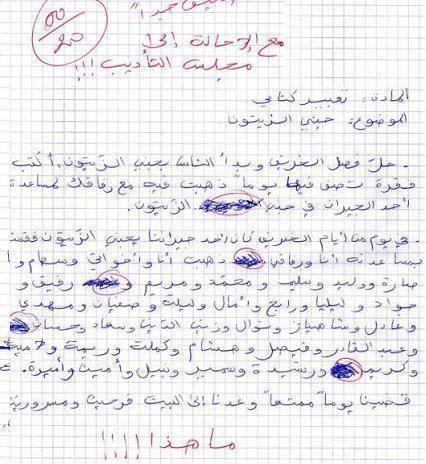 00/20
مع الإحالة إلى
مجلس التأديب !!!
المادة: تعبير كتابي
الموضوع: جني الزيتون
- حلّ فصل الخريف وبدأ الناس بجني الزيتون، أكتب
فقرة تصف فيها يوماً ذهبت فيه مع رفاقك لمساعدة
أحد الجيران في جني الزيتون.
- في يوم من أيام الخريف كان أحد جيراننا يجني الزيتون فقمنا
بمساعدته أنا ورفاقي ذهبت أنا وأخواتي وسهام و
سارة ووليد وسليم و محمد و مريم و رفيق و
جواد و ليليا ورابح وأمال وليلة و سفيان و مهدي
وعادل وشاهيناز ونوال وزينب الدنيا وسعاد وحسان
وعبد القادر وفيصل و هشام و كملت وريمة و
وكريم ورشيدة وسمير ونبيل وأمين وأميرة.
قضينا يوماً ممتعاً وعدنا إلى البيت فرحين ومسرورين
ما هذا !!!!